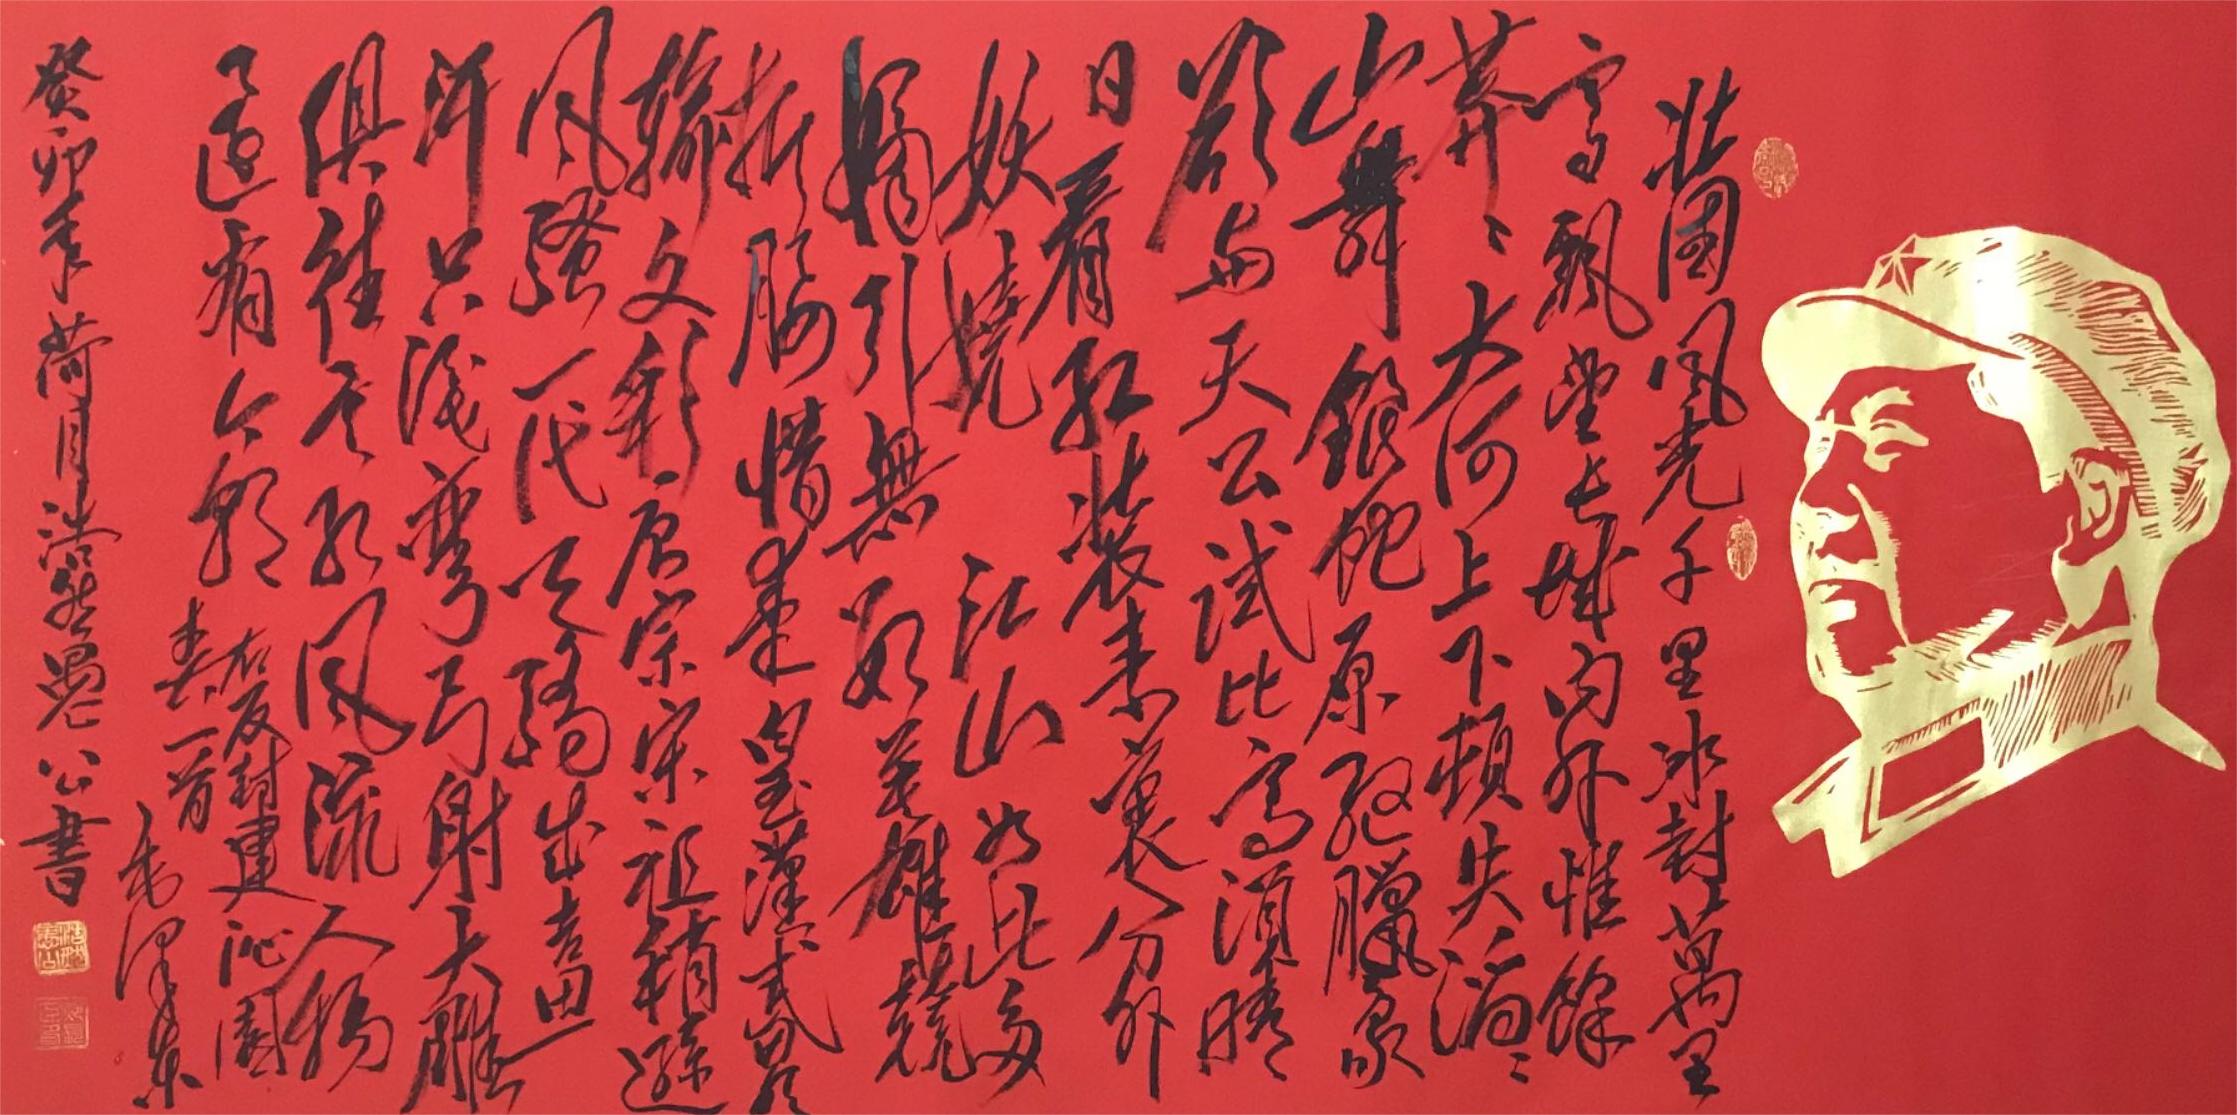 北國風光千里冰封萬里
雪飄望長城内外惟餘
莽〻大河上下頓失滔〻
山舞銀蛇原馳臘象
欲与天公試比高須晴
日看紅裝素裹分外
妖嬈江山如此多
嬌引無数英雄競
折腰惜秦皇漢武略
輸文彩唐宗宋祖稍遜
風騷一代天驕成吉思
汗只識彎弓射大雕
俱往矣数風流人物
還看今朝
右反封建沁園
春一首
毛澤東
癸卯年荷月浩然愚公書
浩然愚公